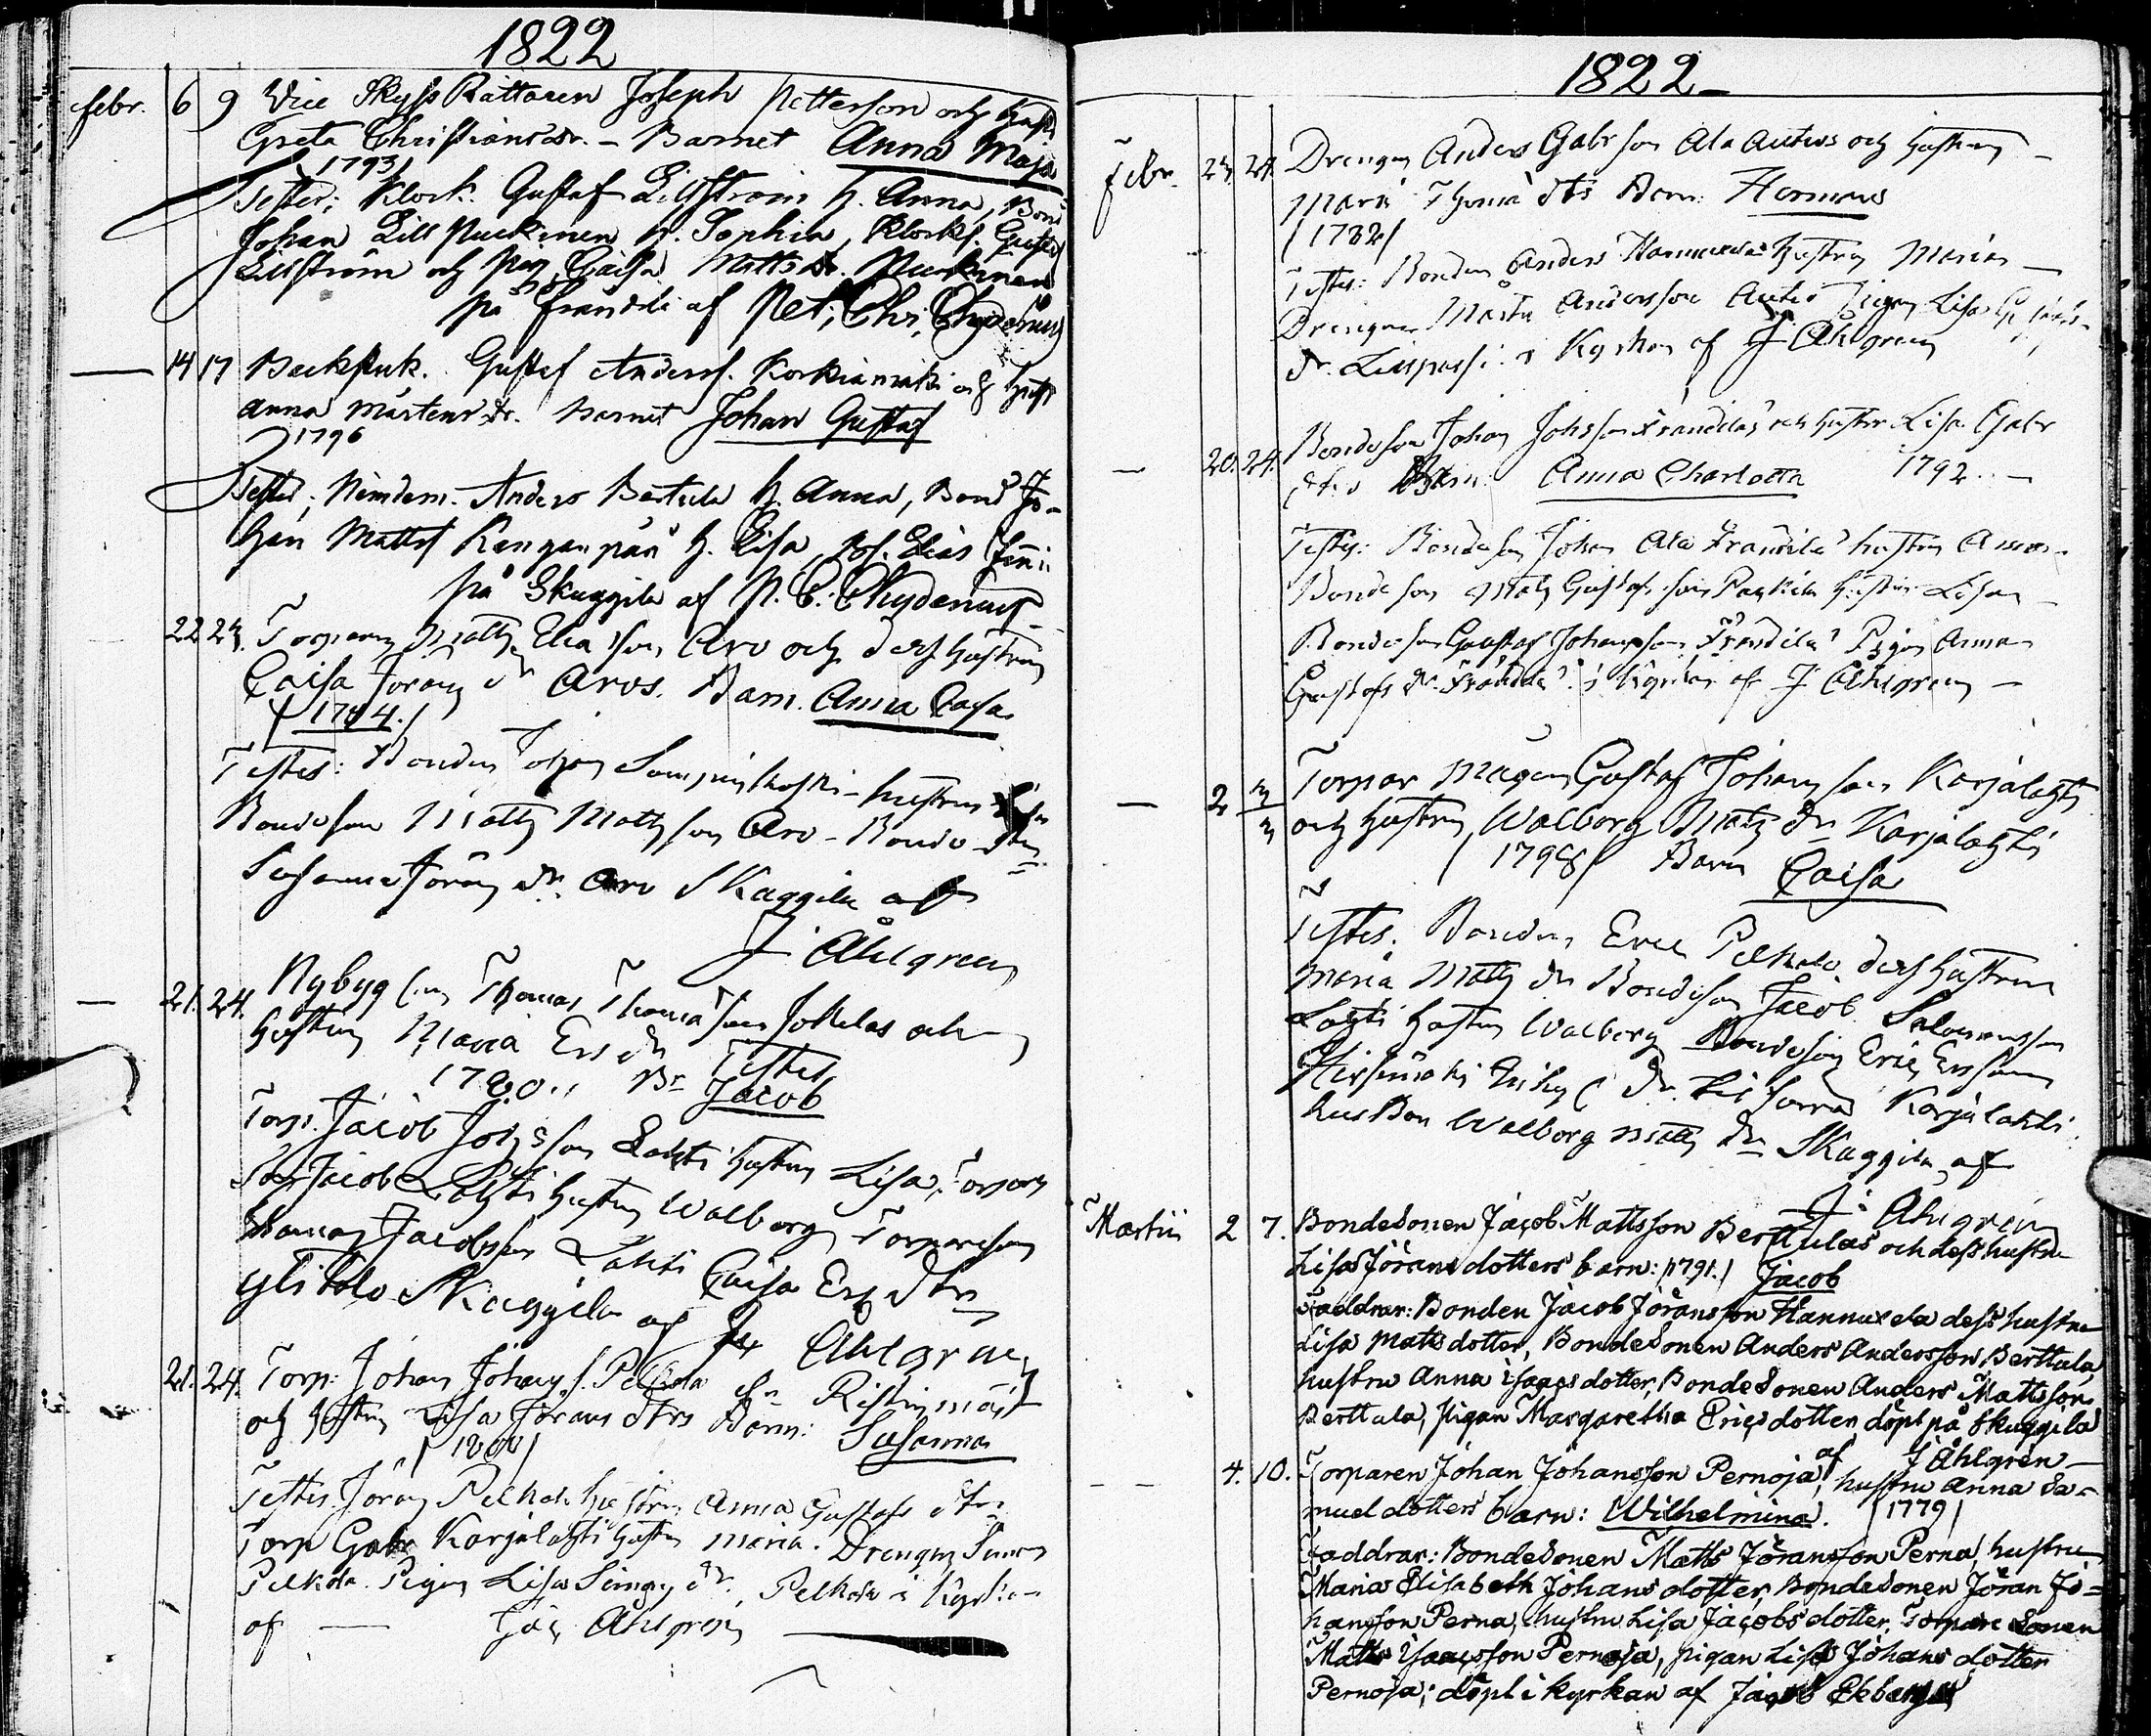 1822
Febr. 6 9 Vice Skyss Rättaren Joseph Petterson och hust.
Greta Christiansdr. – Barnet Anna Maja
1793
Testes; Klock. Gustaf Lillström h. Anna, Bond
Johan Lill Puckinen h. Sophia, Klocks. Gustaf
Lillström och pig. Caisa Mattsdr. Puckinen
på Frändilä af Pet. Chr. Chydenius
— 14 17 Backstuk. Gustaf Anderss. Korkiamäki och hust
Anna Mårtensdr. barnet Johan Gustaf
1796
Testes; Nämdem. Anders Bertula h. Anna, Bond Jo-
han Matts Kanganpää h. Lisa,
på Skaggila af P. C. Chydenius
22 24. Torparen Matts Eliasson Aro och dess hustru
Caisa Jörans dr Aros. Barn. Anna Caisa
Testes: Bonden Johan hustru
Bondeson Matts Mattsson Aro – Bonde
Susanna Jörans dr. Aro Skaggila af
J Åhlgren
— 21. 24. Nybyg Thomas Thomasson Jokelas och
hustru Maria Ers dr Testes
1780.. Br Jacob
Torp. Jacob Johsson Lahti hustru Lisa, Torpare
Jacob Lahti hustru Walborg Torpareson
Thomas Jacobsson Lahti Caisa Ers dtr
Ylitalo Skaggila af J Åhlgren
21. 24. Torp. Johan Johans s. Pelkola Ristinmäj
och hustru Lisa Jörans dtrs Barn: Susanna
1800
Testes Jöran Pelkola hustru Anna Gustafs dtr
Torp Gabr Karjalahti hustru Maria. Drengen Simon
Pelkola. Pigan Lisa Simons dr. Pelkola i Kyrkan
af — Jac Åhlgren
1822
Febr. 24. Drengen Anders Gabrson Ala Autios och hustrun
Maria Thoma dtrs Barn: Hermans
1782
Testes: Bonden Anders Hannuxela hustru Maria
Drengen Matts Andersson Autio Pigan Lisa
dr. i Kyrkan af J Åhlgren
— 20. 24. Bondeson Johan Johsson Frändiläs och hustru Lisa Gabr
dtrs Barn: Anna Charlotta 1792. –
Testes: Bondeson Johan Ala Frändilä hustru Anna
Bondeson Matts Gustafsson hustru Lisa
Bondeson Gustaf Johansson Frändilä Pigan Anna
Gustafs dr. Frändilä i Kyrkan af J Åhlgren –
— 2 3/3 Torpar Magen Gustaf Johansson Karjalahti
och hustru Walborg Matts dr Karjalahti
1798 Barn Caisa
Testes. Bonden Eric Pelkola dess hustru
Maria Matts dr Bondeson Jacob Salomonsson
Lahti hustru Walborg Bondeson Eric Ersson
Karjalahti
Walborg Matts dr Skaggila af
J: Åhlgren
Martii 2 7. Bondesonen Jacob Mattsson Berttulas och dess hustru
Lisa Jörans dotters barn: /1791./ Jacob
Faddrar: Bonden Jacob Jöransson Hannuxela dess hustru
Lisa Matts dotter, Bondesonen Anders Andersson Berttula,
hustru Anna Isaacs dotter, Bondesonen Anders Mattsson
Berttula, pigan Margaretha Erics dotter, döpt på Skaggila
af J Åhlgren –
— 4. 10. Torparen Johan Johansson Pernoja, hustru Anna Sa-
muel dotters barn: Wilhelmina. /1779/
Faddrar: Bondesonen Matts Jöransson Perna, hustru
Maria Elisabeth Johans dotter, Bondesonen Jöran Jo-
hansson Perna, hustru Lisa Jacobs dotter, Torpare sonen
Matts Isaacsson Pernoja, pigan Lisa Johans dotter
Pernoja; döpt i kyrkan af Jacob Ekberg